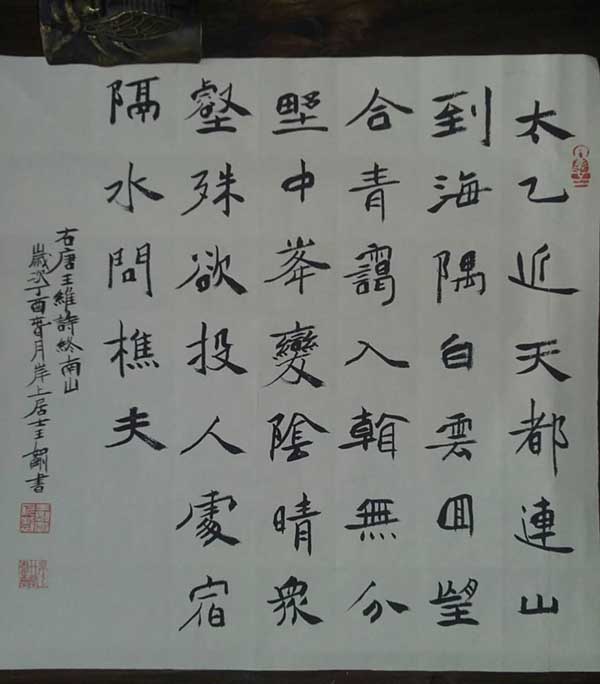 太乙近天都連山
到海隅白雲囬望
合青靄入看無分
野中峯變陰晴衆
壑殊欲投人處宿
隔水問樵夫
右唐王維詩終南山
歲次丁酉春月岸上居士王剛書